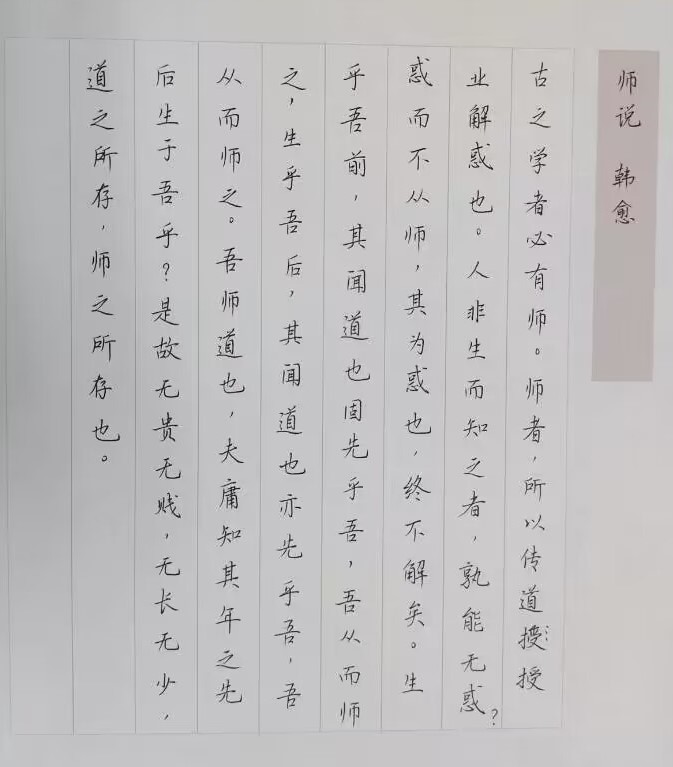 师说 韩愈
古之学者必有师。师者，所以传道授授
业解惑也。人非生而知之者，孰能无惑？
惑而不从师，其为惑也，终不解矣。生
乎吾前，其闻道也固先乎吾，吾从而师
之，生乎吾后，其闻道也亦先乎吾，吾
从而师之。吾师道也，夫庸知其年之先
后生于吾乎？是故无贵无贱，无长无少，
道之所存，师之所存也。